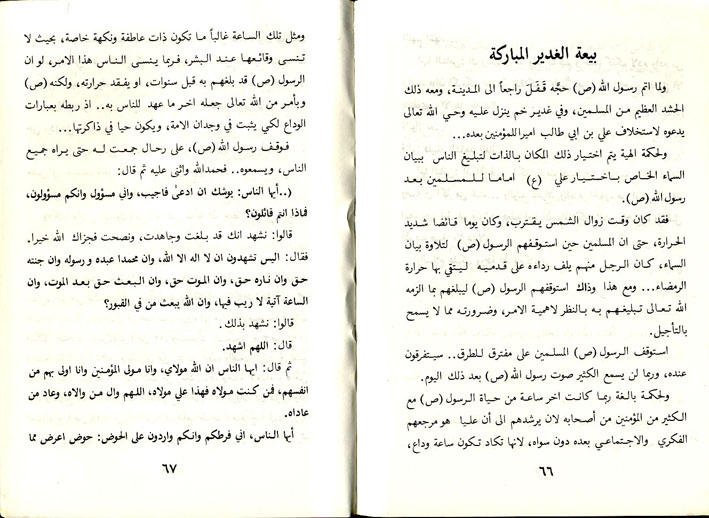 بيعة الغدير المباركة
ولما اتم رسول الله (ص) حجّه قَفَلَ راجعاً الى المدينة، ومعه ذلك
الحشد العظيم من المسلمين، وفي غدير خم ينزل عليه وحي الله تعالى
يدعوه لاستخلاف علي بن ابي طالب اميرا للمؤمنين بعده...
ولحكمة الهية يتم اختيار ذلك المكان بالذات لتبليغ الناس ببيان
السماء الخاص باختيار علي (ع) اماما للمسلمين بعد
رسول الله (ص).
فقد كان وقت زوال الشمس يقترب، وكان يوما قائضا شديد
الحرارة، حتى ان المسلمين حين استوقفهم الرسول (ص) لتلاوة بيان
السماء، كان الرجل منهم يلف رداءه على قدميه ليتقي بها حرارة
الرمضاء... ومع هذا وذاك استوقفهم الرسول (ص) ليبلغهم بما الزمه
الله تعالى تبليغهم به بالنظر لاهمية الامر، وضرورته مما لا يسمح
بالتأجيل.
استوقف الرسول (ص) المسلمين على مفترق للطرق.. سيتفرقون
عنده، وربما لن يسمع الكثير صوت رسول الله (ص) بعد ذلك اليوم.
ولحكمة بالغة ربما كانت اخر ساعة من حياة الرسول (ص) مع
الكثير من المؤمنين من أصحابه لان يرشدهم الى أن عليا هو مرجعهم
الفكري والاجتماعي بعده دون سواه، لانها تكاد تكون ساعة وداع،
٦٦
ومثل تلك الساعة غالباً ما تكون ذات عاطفة ونكهة خاصة، بحيث لا
تنسى وقائعها عند البشر، فربما ينسى الناس هذا الامر، لو ان
الرسول (ص) قد بلغهم به قبل سنوات، او يفقد حرارته، ولكنه (ص)
وبأمر من الله تعالى جعله اخر ما عهد للناس به.. اذ ربطه بعبارات
الوداع لكي يثبت في وجدان الامة، ويكون حيا في ذاكرتها...
فوقف رسول الله (ص)، على رحال جمعت له حتى يراه جميع
الناس، ويسمعوه.. فحمدالله واثنى عليه ثم قال:
(..أيها الناس: يوشك ان ادعىٰ فاجيب، واني مسؤول وانكم مسؤولون،
فماذا انتم قائلون؟
قالوا: نشهد انك قد بلغت وجاهدت، ونصحت فجزاك الله خيرا.
فقال: اليس تشهدون ان لا اله الا الله، وان محمدا عبده ورسوله وان جنته
حق وان ناره حق، وان الموت حق، وان البعث حق بعد الموت، وان
الساعة آتية لا ريب فيها، وان الله يبعث من في القبور؟
قالوا: نشهد بذلك.
قال: اللهم اشهد.
ثم قال: ايها الناس ان الله مولاي، وانا مولى المؤمنين وانا اولى بهم من
انفسهم، فمن كنت مولاه فهذا علي مولاه، اللهم وال من والاه، وعاد من
عاداه.
أيها الناس، اني فرطكم وانكم واردون على الحوض: حوض اعرض مما
٦٧